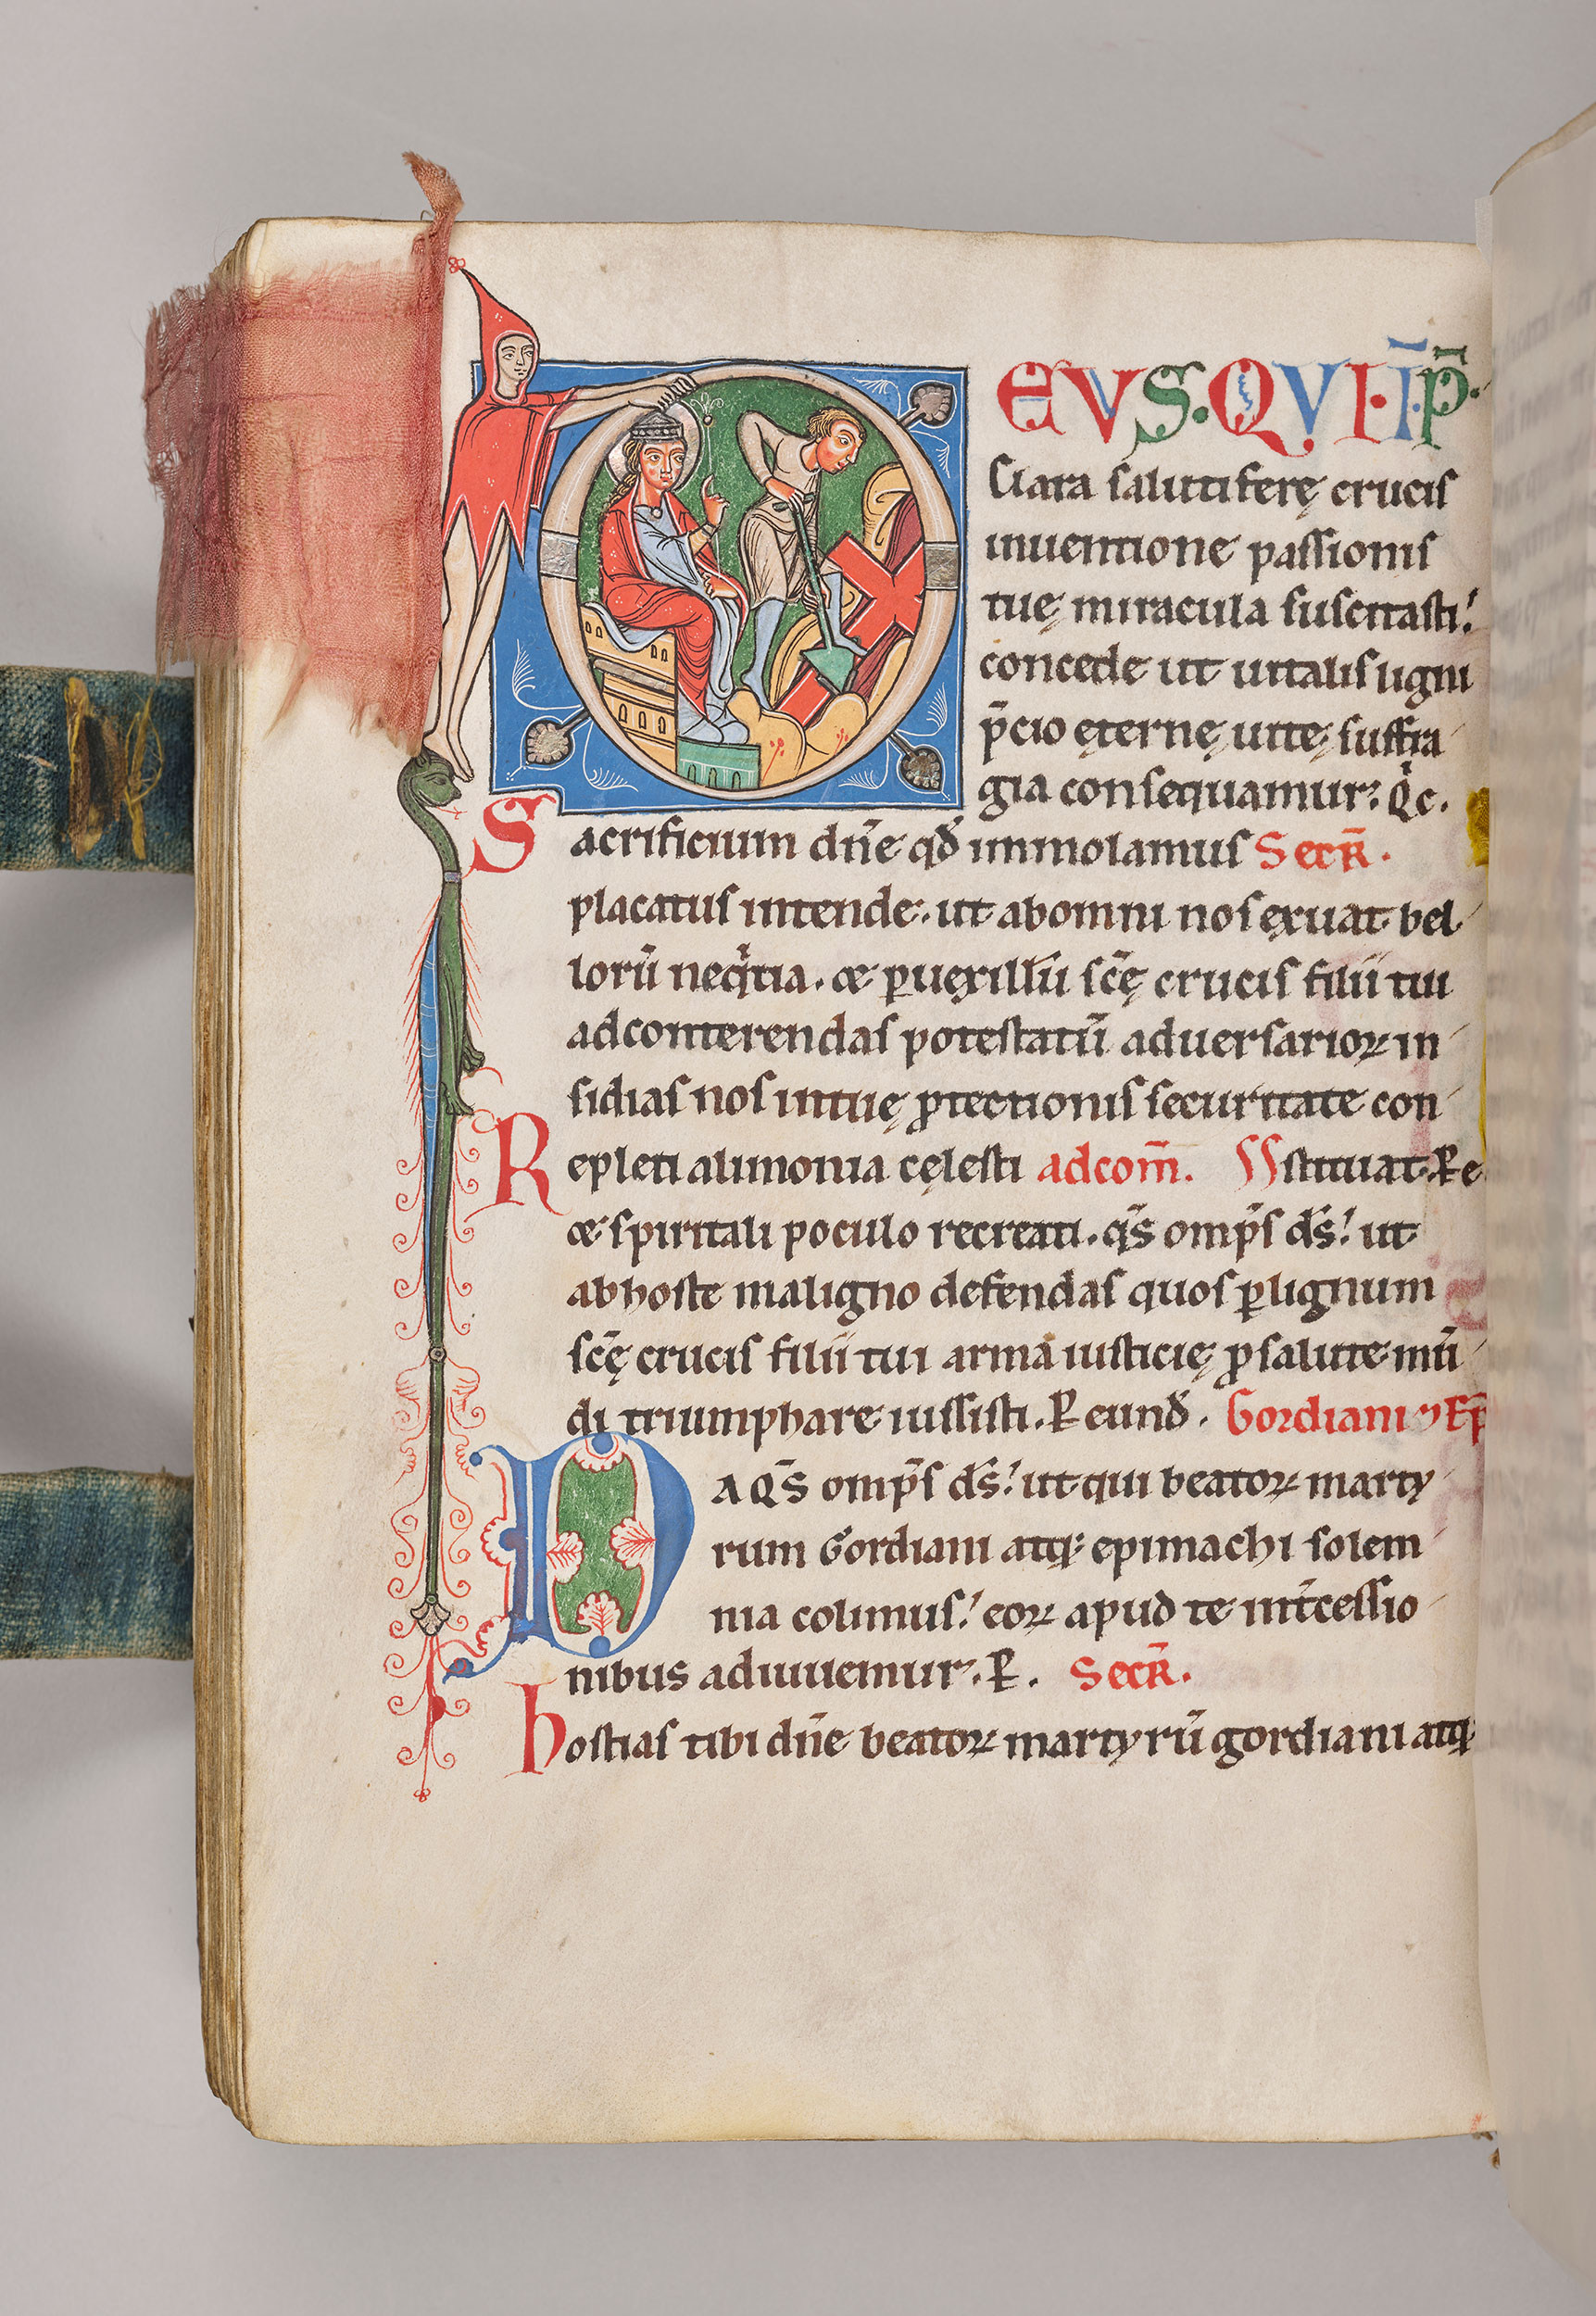 DEVS·QVI·I̅·P̅·
clara salutiferę crucis
inuentione passionis
tuę miracula suscitasti!
concede ut uitalis ligni
p̄cio ęternę uitę suffra
gia consequamur. Q̇c.
Sacrificium dn̄e qđ immolamus Secr̄.
placatus intende. ut ab omni nos exuat bel
lorū neq̇tia. & ꝑ uexillū scę̄ crucis filii tui
ad conterendas potestatū aduersarioꝝ in
sidias nos in tuę ꝓtectionis securitate con
Repleti alimonia cęlesti ad com̄. stituat. P̱ e
& spiritali poculo recreati. q̄s omp̄s ds̄! ut
ab hoste maligno defendas quos ꝑ lignum
scę̄ crucis filii tui arma iusticię ꝓ salute mū
di triumphare iussisti. P̱ eunđ. Gordiani ⁊ Ep̄
DA QS̄ omp̄s ds̄! ut qui beatoꝝ marty
rum Gordiani atq; epimachi solem
nia colimus! eoꝝ apud te int̄cessio
nibus adiuuemur. P̱. Secr̄.
hostias tibi dn̄e beatoꝝ martyrū gordiani atq;